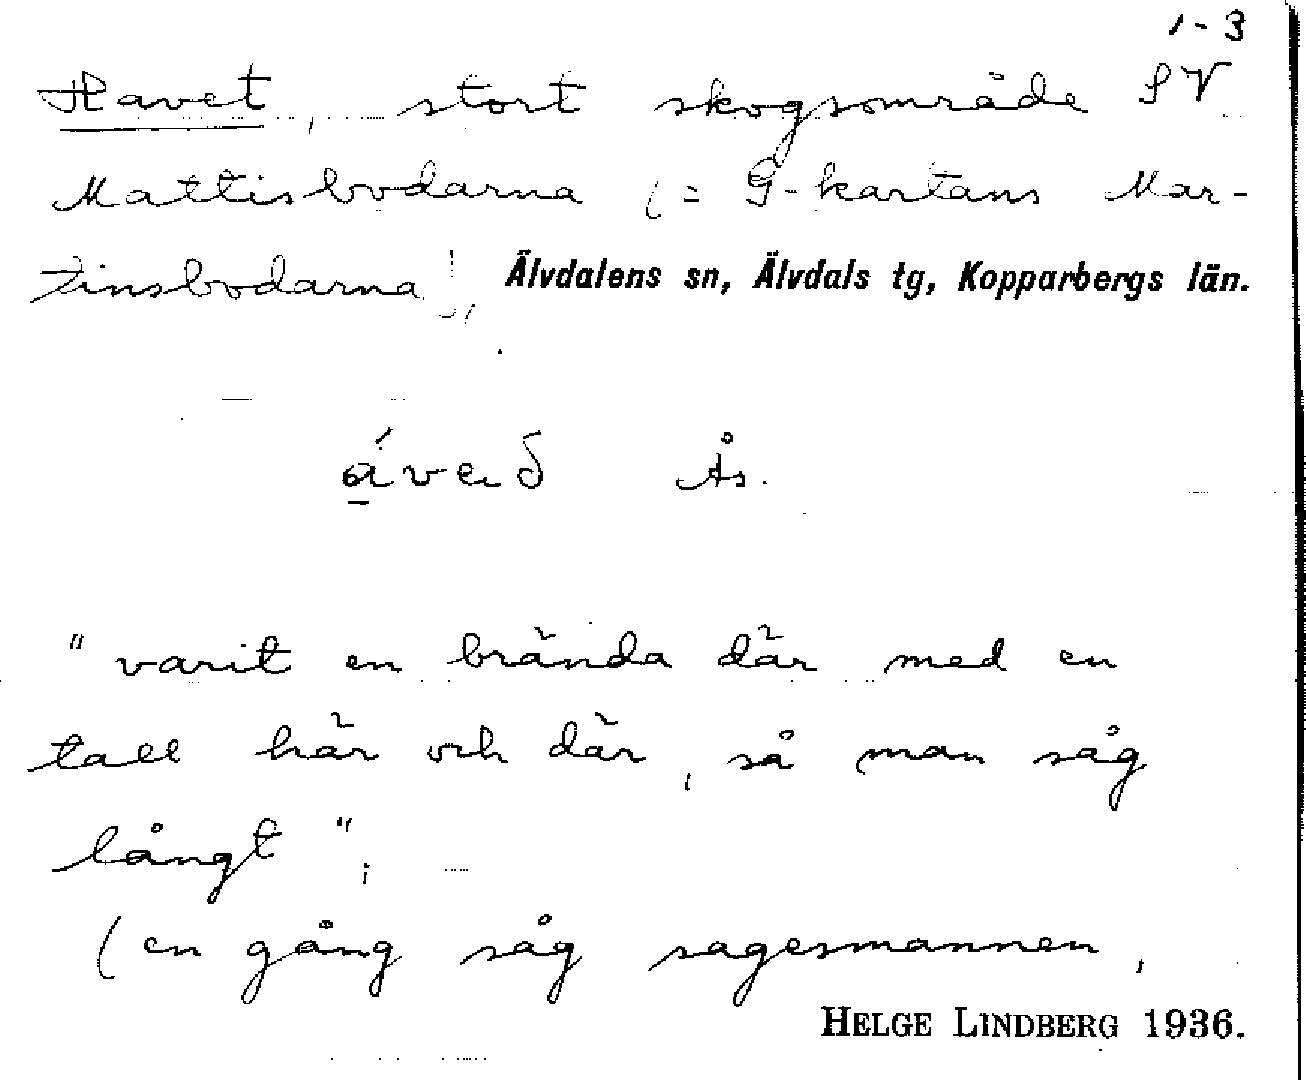 1-3
Havet, stort skogsområde SV
Mattisbodarna (= G-kartans Mar-
tinsbodarna), Älvdalens sn, Älvdals tg, Kopparbergs län.
Ås.
"varit en brända där med en
tall här och där, så man såg
långt";
(en gång såg sagesmannen,
HELGE LINDBERG 1936.